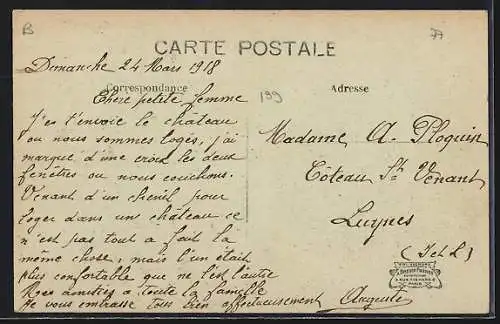 B
77
CARTE POSTALE
Dimanche 24 Mars 1918
Correspondance
Adresse
Chère petite femme
199
J'es t'envoie le château
ou nous sommes logés, j'ai
marque d'une croix les deux
fenêtres ou nous couchons.
Venant d'un chenil pour
loger dans un château ce
n'est pas tout a fait la
même chose, mais l'un était
plus confortable que ne l'est l'autre
Mes amitiés a toute la famille
Je vous embrasse tous bien affectueusement
Auguste
Madame A. Ploquin
Côteau St Venant
Luynes
(I et L)
PARIS